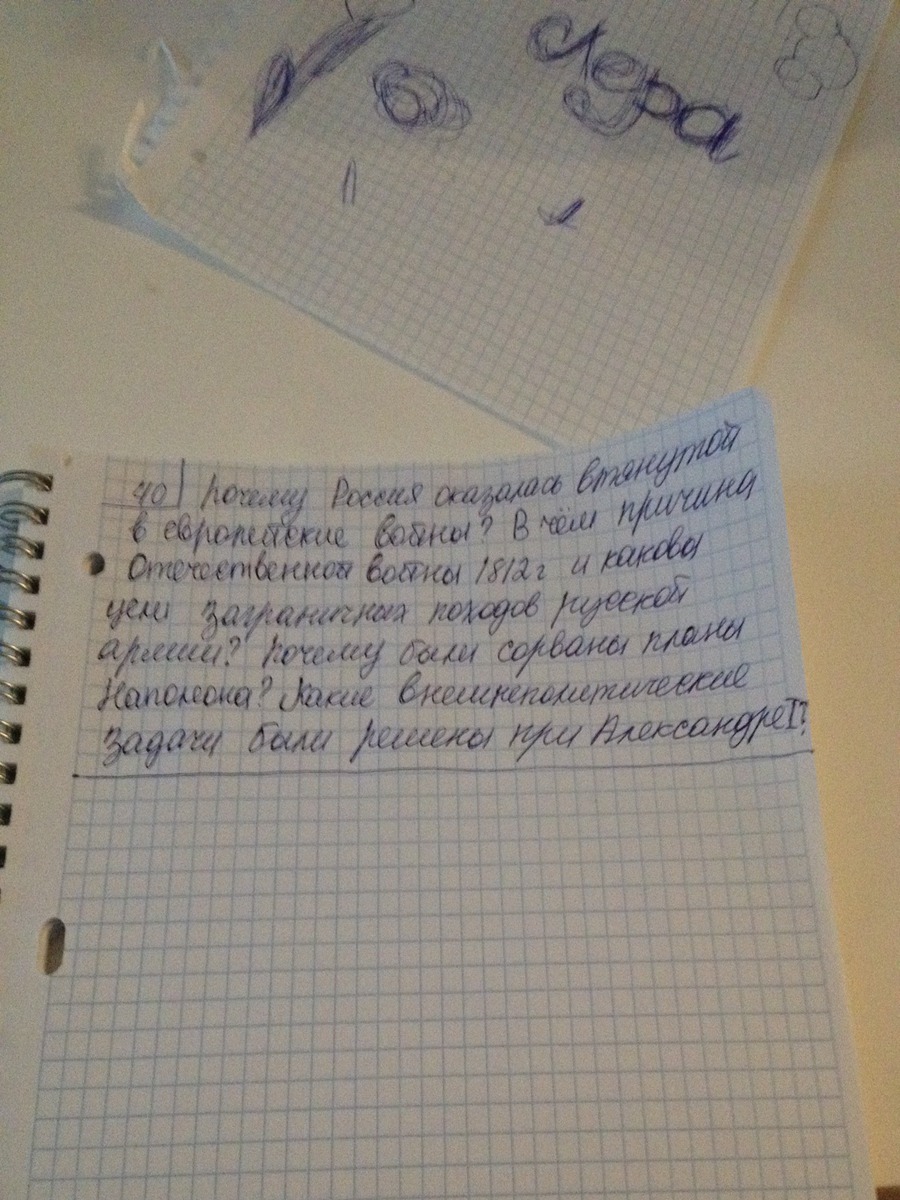 Лера
40) Почему Россия оказалась втянутой
в европейские войны? В чём причина
Отечественной войны 1812 г и каковы
цели заграничных походов русской
армии? Почему были сорваны планы
Наполеона? Какие внешнеполитические
задачи были решены при Александре I?